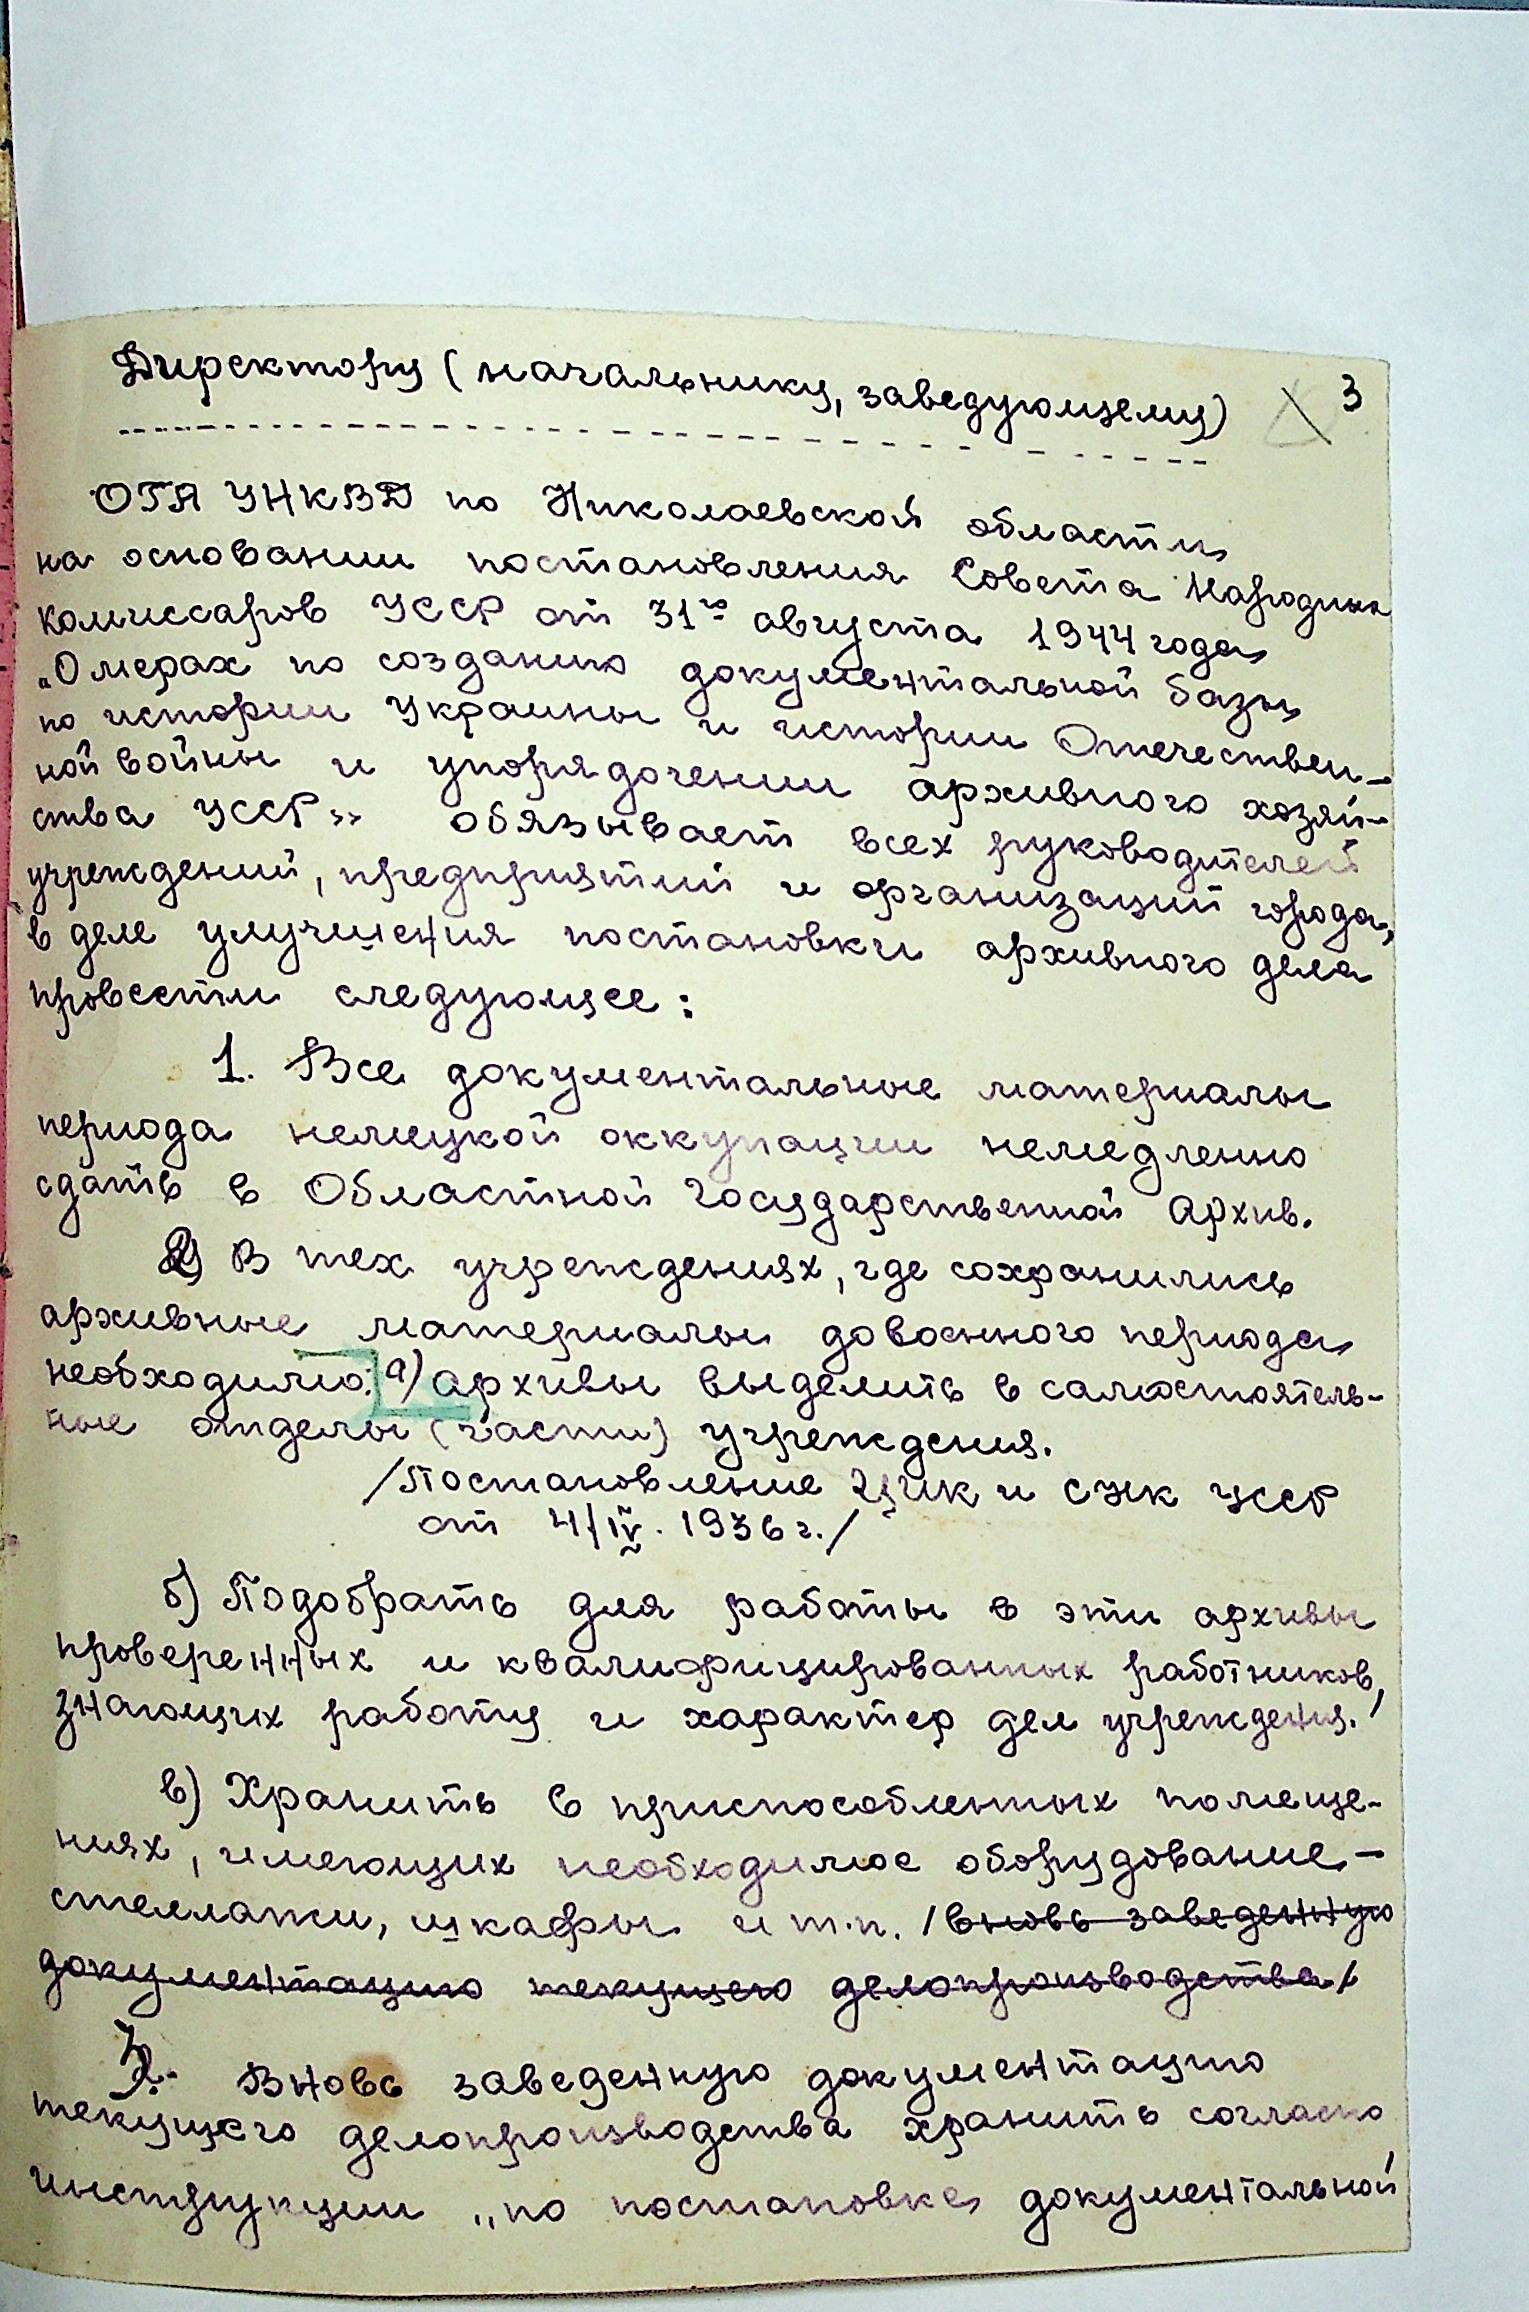 3
Директору (начальнику, заведующему)
ОГА УНКВД по Николаевской области
на основании постановления Совета Народных
комиссаров УССР от 31го августа 1944 года
„О мерах по созданию документальной базы
по истории Украины и истории Отечествен-
ной войны и упорядочении архивного хозяй-
ства УССР» обязывает всех руководителей
учреждений, предприятий и организаций города,
в деле улучшения постановки архивного дела
провести следующее:
1. Все документальные материалы
периода немецкой оккупации немедленно
сдать в Областной Государственной Архив.
2) В тех учреждениях, где сохранились
архивные материалы довоенного периода
необходимо: а) архивы выделить в самостоятель-
ные отделы (части) учреждения.
/Постановление ЦИК и СНК УССР
от 4/IV. 1936 г./
б) Подобрать для работы в эти архивы
проверенных и квалифицированных работников,
знающих работу и характер дел учреждения.
в) Хранить в приспособленных помеще-
ниях, имеющих необходимое оборудование -
стеллажи, шкафы и т.п. /вновь заведенную
документацию текущего делопроизводства/
3. Вновь заведенную документацию
текущего делопроизводства хранить согласно
инструкции „по постановке документальной